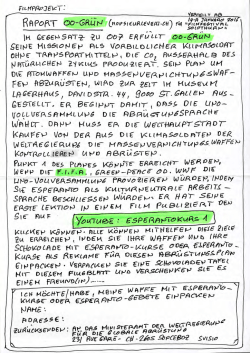 FILMPROJEKT:
RAPORT 00-GRÜN
IM GEGENSATZ ZU 007 ERFÜLLT 00-GRÜN
SEINE MISSIONEN ALS VORBILDLICHER KLIMASOLDAT
OHNE TRANSPORTMITTEL, DIE CO₂ AUSSERHALB DES
NATÜRLICHEN ZYKLUS PRODUZIERT. SEIN PLAN UM
DIE ATOMWAFFEN UND MASSENVERNICHTUNGSWAF-
FEN ABZURÜSTEN, WIRD ZUR ZEIT IM MUSEUM
LAGERHAUS, DAVIDSTR. 44, 9000 ST. GALLEN AUS-
GESTELLT. ER BEGINNT DAMIT, DASS DIE UNO-
VOLLVERSAMMLUNG DIE ABRÜSTUNGSSPRACHE
WÄHLT. DANN MUSS ER DIE WELTHAUPTSTADT
KAUFEN VON DER AUS DIE KLIMASOLDATEN DER
WELTREGIERUNG DIE MASSENVERNICHTUNGSWAFFEN
KONTROLLIEREN UND ABRÜSTEN.
PUNKT 1 DES PLANES KÖNNTE ERREICHT WERDEN,
WENN DIE F.I.F.A., GREEN-PEACE OD. WWF DIE
UNO-VOLLVERSAMMLUNG PROVOZIEREN WÜRDEN, INDEM
SIE ESPERANTO ALS KULTURNEUTRALE ARBEITS-
SPRACHE BESCHLIESSEN WÜRDEN. ER HAT SEINE
ERSTE LEKTION IN EINEM FILM PUBLIZIERT DEN
SIE AUF YOUTUBE: ESPERANTOKURS 1
KLICKEN KÖNNEN. ALLE KÖNNEN MITHELFEN DIESE ZIELE
ZU ERREICHEN, INDEM SIE IHRE WAFFEN UND IHRE
SCHOKOLADE MIT ESPERANTO-KURSE ODER ESPERANTO-
KURSE ALS REKLAME FÜR DIESEN ABRÜSTUNGSPLAN
EINPACKEN. VERPACKEN SIE EINE SCHOKOLADEN TAFEL
MIT DIESEM FLUGBLATT UND VERSCHENKEN SIE ES
EINEM FREUND(IN)...
ICH MÖCHTE/HABE, MEINE WAFFE MIT ESPERANTO-
KURSE ODER ESPERANTO-GEBETE EINPACKEN
NAME:
ADRESSE:
ZURÜCKSENDEN: AN DAS MINISTERAMT DER WELTREGIERUNG
FÜR DIE GLOBALE ABRÜSTUNG